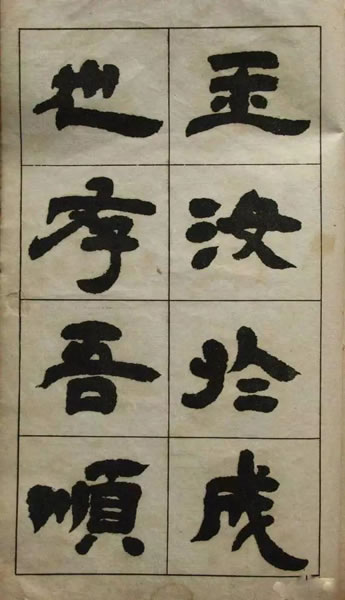 玉汝於成
也存吾順